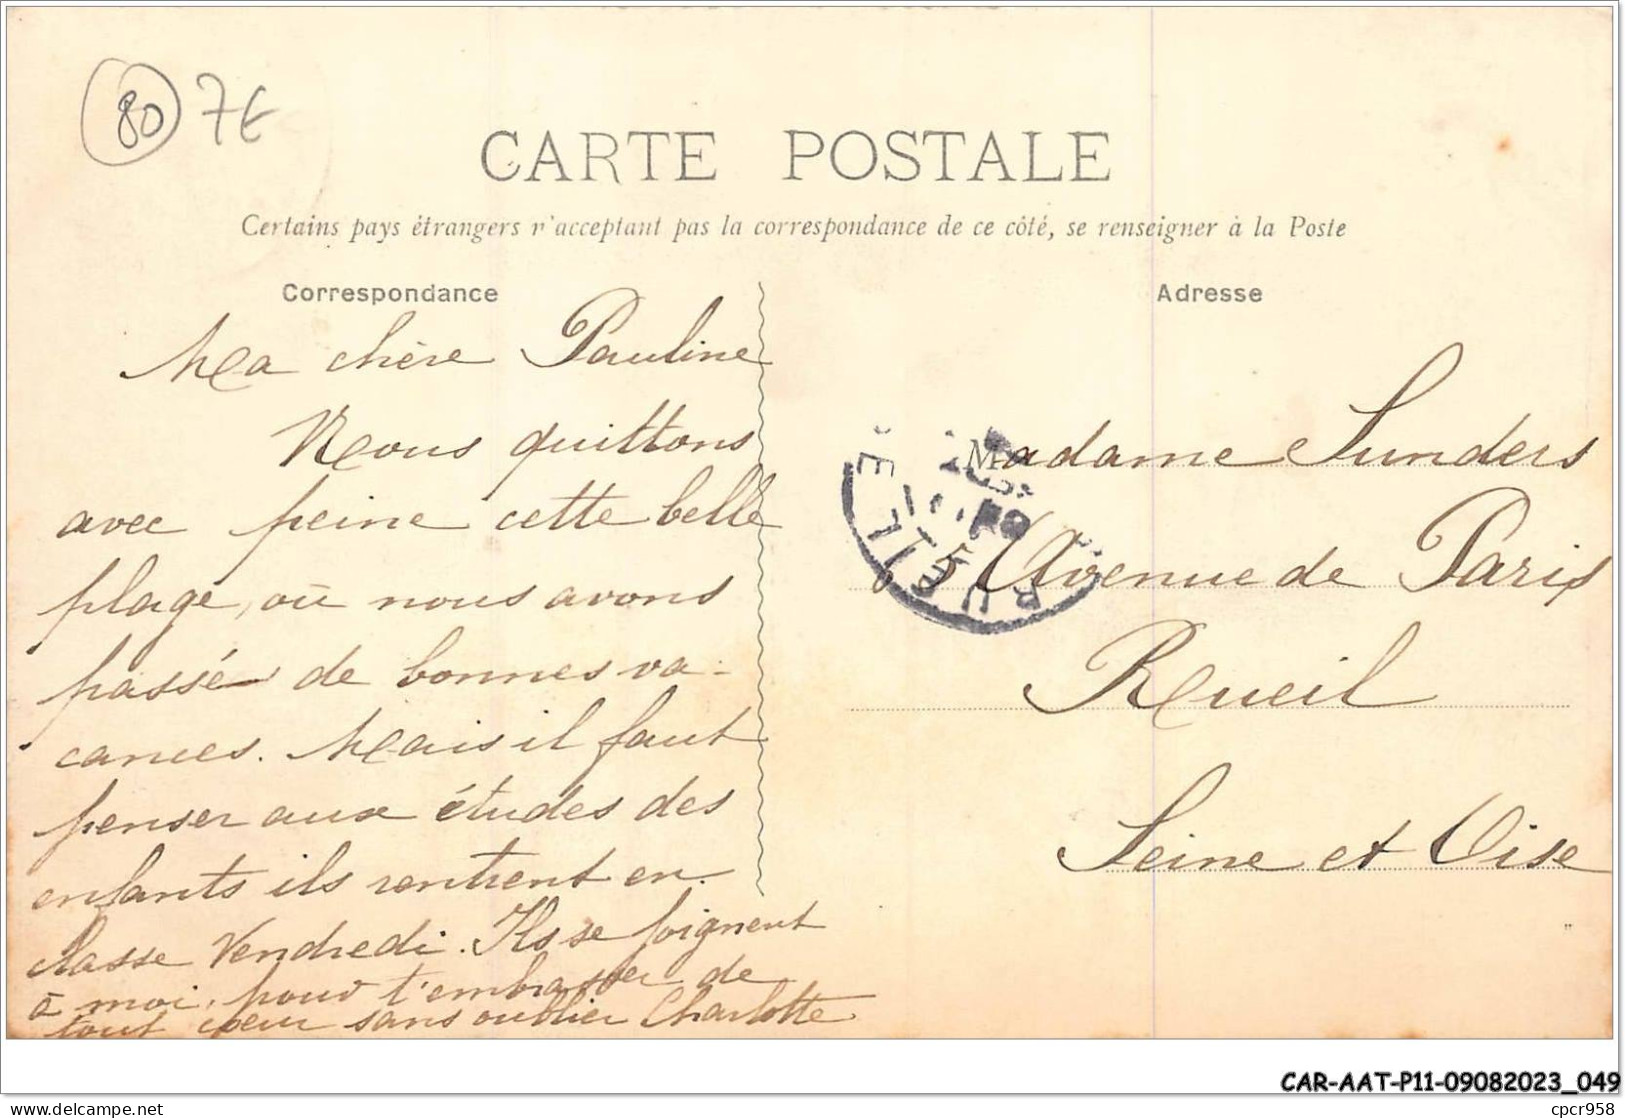 80 7€
CARTE POSTALE
Certains pays étrangers n'acceptant pas la correspondance de ce côté, se renseigner à la Poste
Correspondance
Ma chère Pauline
Nous quittons
avec peine cette belle
plage, où nous avons
passé de bonnes va-
cances. Mais il faut
penser aux études des
enfants ils rentrent en
classe Vendredi. Ils se joignent
à moi, pour t'embrasser de
tout cœur sans oublier Charlotte
Adresse
Madame Sunders
Avenue de Paris
Rueil
Seine et Oise
RUEIL
CAR-AAT-P11-09082023_049
delcampe.net
cpcr958